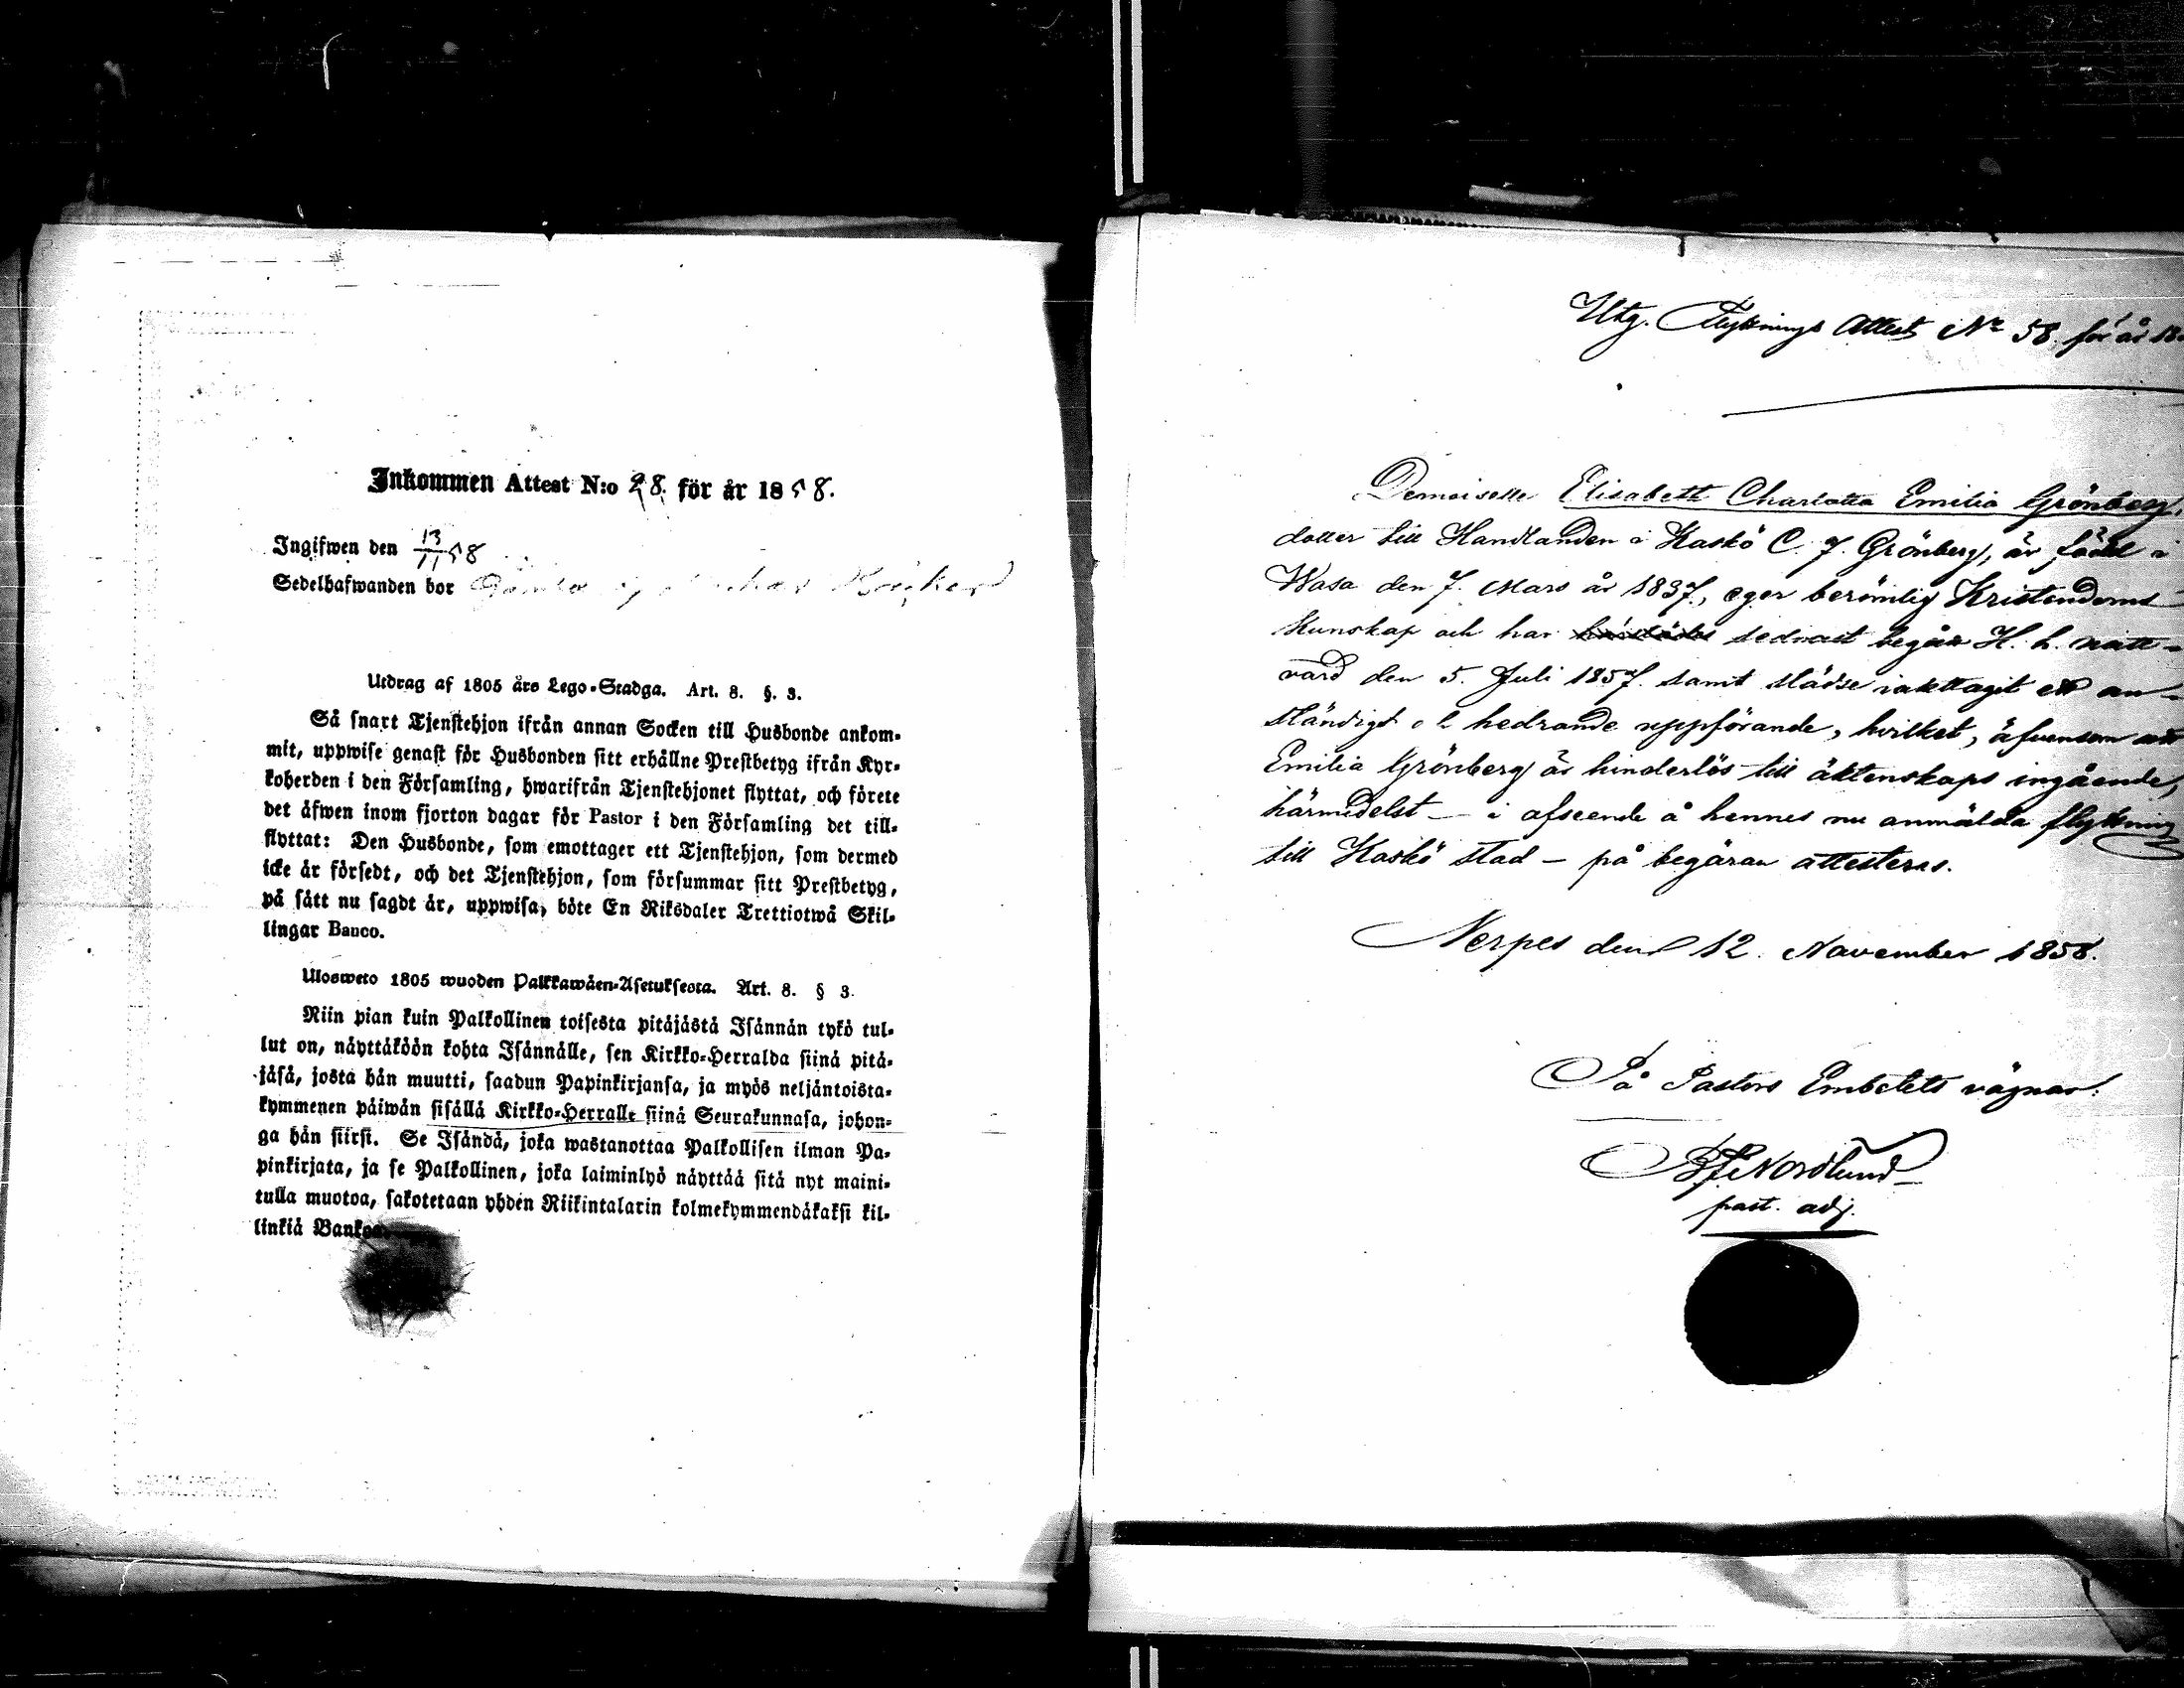 Inkommen Attest N:o 28. för år 1858.
Ingifwen den 13/11 58
Sedelhafwanden bor
Utdrag af 1805 års Lego-Stadga. Art. 8. §. 3.
Så snart Tjenstehjon ifrån annan Socken till Husbonde ankom-
mit, uppwise genast för Husbonden sitt erhållne Prestbetyg ifrån Kyr-
koherden i den Församling, hwarifrån Tjenstehjonet flyttat, och förete
det äfwen inom fjorton dagar för Pastor i den Församling det till-
flyttat: Den Husbonde, som emottager ett Tjenstehjon, som dermed
icke är försedt, och det Tjenstehjon, som försummar sitt Prestbetyg,
på sätt nu sagdt är, uppwisa, böte En Riksdaler Trettiotwå Skil-
lingar Banco.
Ulosweto 1805 wuoden Palkkawäen-Asetuksesta. Art. 8. § 3.
Niin pian kuin Palkollinen toisesta pitäjästä Isännän tykö tul-
lut on, näyttäköön kohta Isännälle, sen Kirkko-Herralda siinä pitä-
jäsä, josta hän muutti, saadun Papinkirjansa, ja myös neljäntoista-
kymmenen päiwän sisällä Kirkko-Herralle siinä Seurakunnasa, johon-
ga hän siirsi. Se Isändä, joka wastanottaa Palkollisen ilman Pa-
pinkirjata, ja se Palkollinen, joka laiminlyö näyttää sitä nyt maini-
tulla muotoa, sakotetaan yhden Riikintalarin kolmekymmendäkaksi kil-
linkiä Bankoa.
Utg. Flyttnings Attest No 58 för år 18
Demoiselle Elisabett Charlotta Emilia Grönberg,
dotter till Handlanden i Kaskö C. J. Grönberg, är född i
Wasa den 7. Mars år 1837, eger berömlig Kristendoms
kunskap och har sednast begått H. h. natt-
vard den 5. Juli 1857. samt städse iakttagit ett an-
ständigt o h hedrande uppförande, hvilket, äfvensom att
Emilia Grönberg är hinderlös till äktenskaps ingående,
härmedelst — i afseende å hennes nu anmälda flyttning
till Kaskö stad — på begäran attesteras.
Nerpes den 12. November 1858.
På Pastors Embetets vägnar:
Nordlund
past. adj.